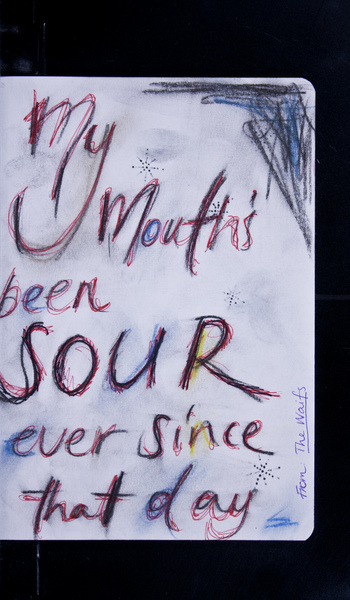 My
Mouth's
been
SOUR
ever since
that day
From The Waifs